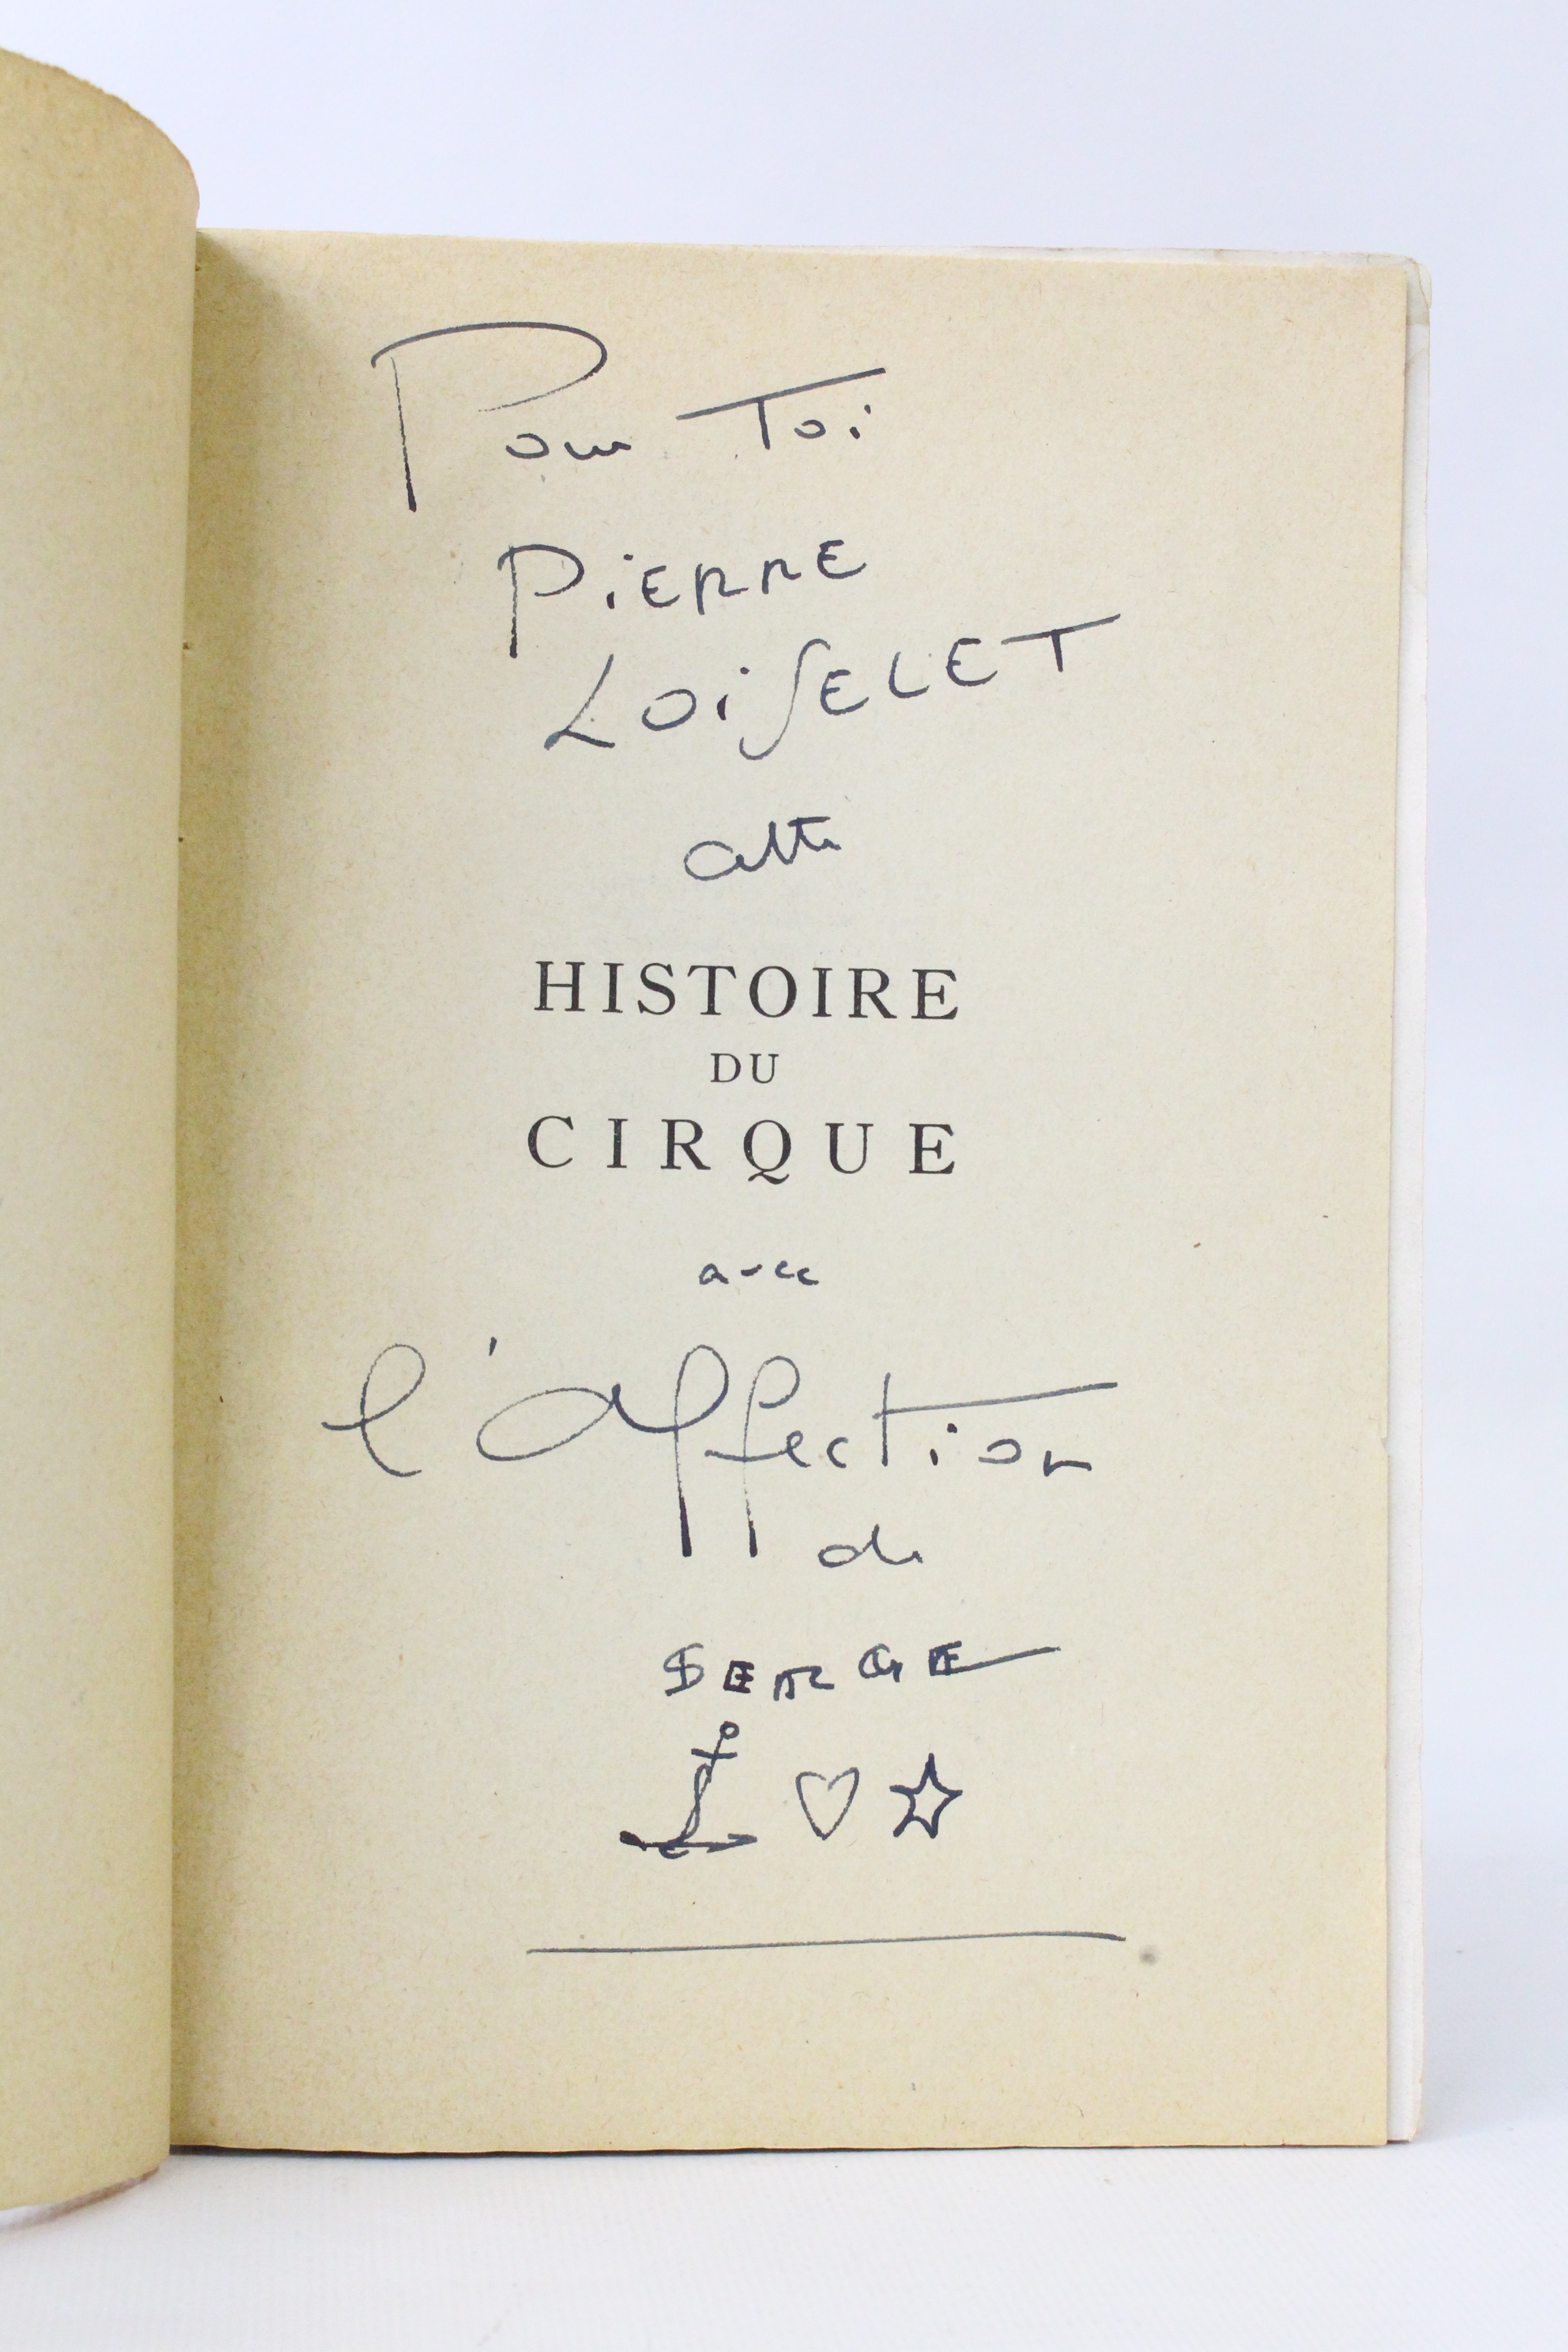 Pour Toi
PiERRE
LOiSELET
cette
HISTOIRE
DU
CIRQUE
avec
l'Affection
de
SERGE